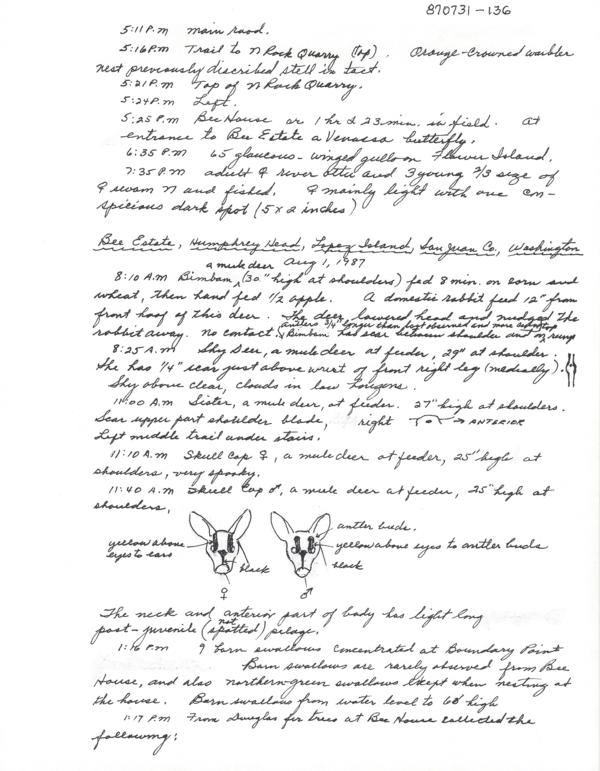 870731-136
5:11 P.M main road.
5:16 P.M Trail to N Rock Quarry (top). Orange-Crowned warbler
nest previously discribed still in tact.
5:21 P.m Top of N Rock Quarry.
5:24 P.m Left.
5:25 P.m Bee House or 1 hr & 23 min. in field. At
entrance to Bee Estate a Venassa butterfly.
6:35 P.M 65 glaucous-winged gulls on Flower Island.
7:35 P.M adult ♀ river otter and 3 young 2/3 size of
♀ swam N and fished. ♀ mainly light with one con-
spicious dark spot (5 x 2 inches)
Bee Estate, Humphrey Head, Lopez Island, San Juan Co, Washington
Aug 1, 1987
a mule deer
8:10 A.M Bimbam (30" high at shoulders) fed 8 min. on corn and
wheat, then hand fed 1/2 apple. A domestic rabbit fed 12" from
front hoof of this deer. The deer lowered head and nudged the
antlers 3/4" longer than last observed and more
rabbit away. No contact. Bimbam had scar between shoulder and
8:25 A.M Shy Deer, a mule deer at feeder, 29" at shoulder.
She has 1/4" scar just above wrist of front right leg (medially).
Sky above clear, clouds in low horizons.
11:00 A.M Sister, a mule deer, at feeder. 27" high at shoulders.
Scar upper part shoulder blade, right → ANTERIOR
Left middle trail under stairs.
11:10 A.M Skull Cap ♀, a mule deer at feeder, 25" high at
shoulders, very spooky.
11:40 A.M Skull Cap ♂, a mule deer at feeder, 25" high at
shoulders,
antler buds.
yellow above eyes to ears
yellow above eyes to antler buds
black
black
♀ ♂
The neck and anterior part of body has light long
post-juvenile (not spotted) pelage.
1:16 P.M 9 barn swallows concentrated at Boundary Point
Barn swallows are rarely observed from Bee
House, and also northern-green swallows except when nesting at
the house. Barn swallows from water level to 60' high
1:17 P.M From Douglas fir trees at Bee House collected the
following: